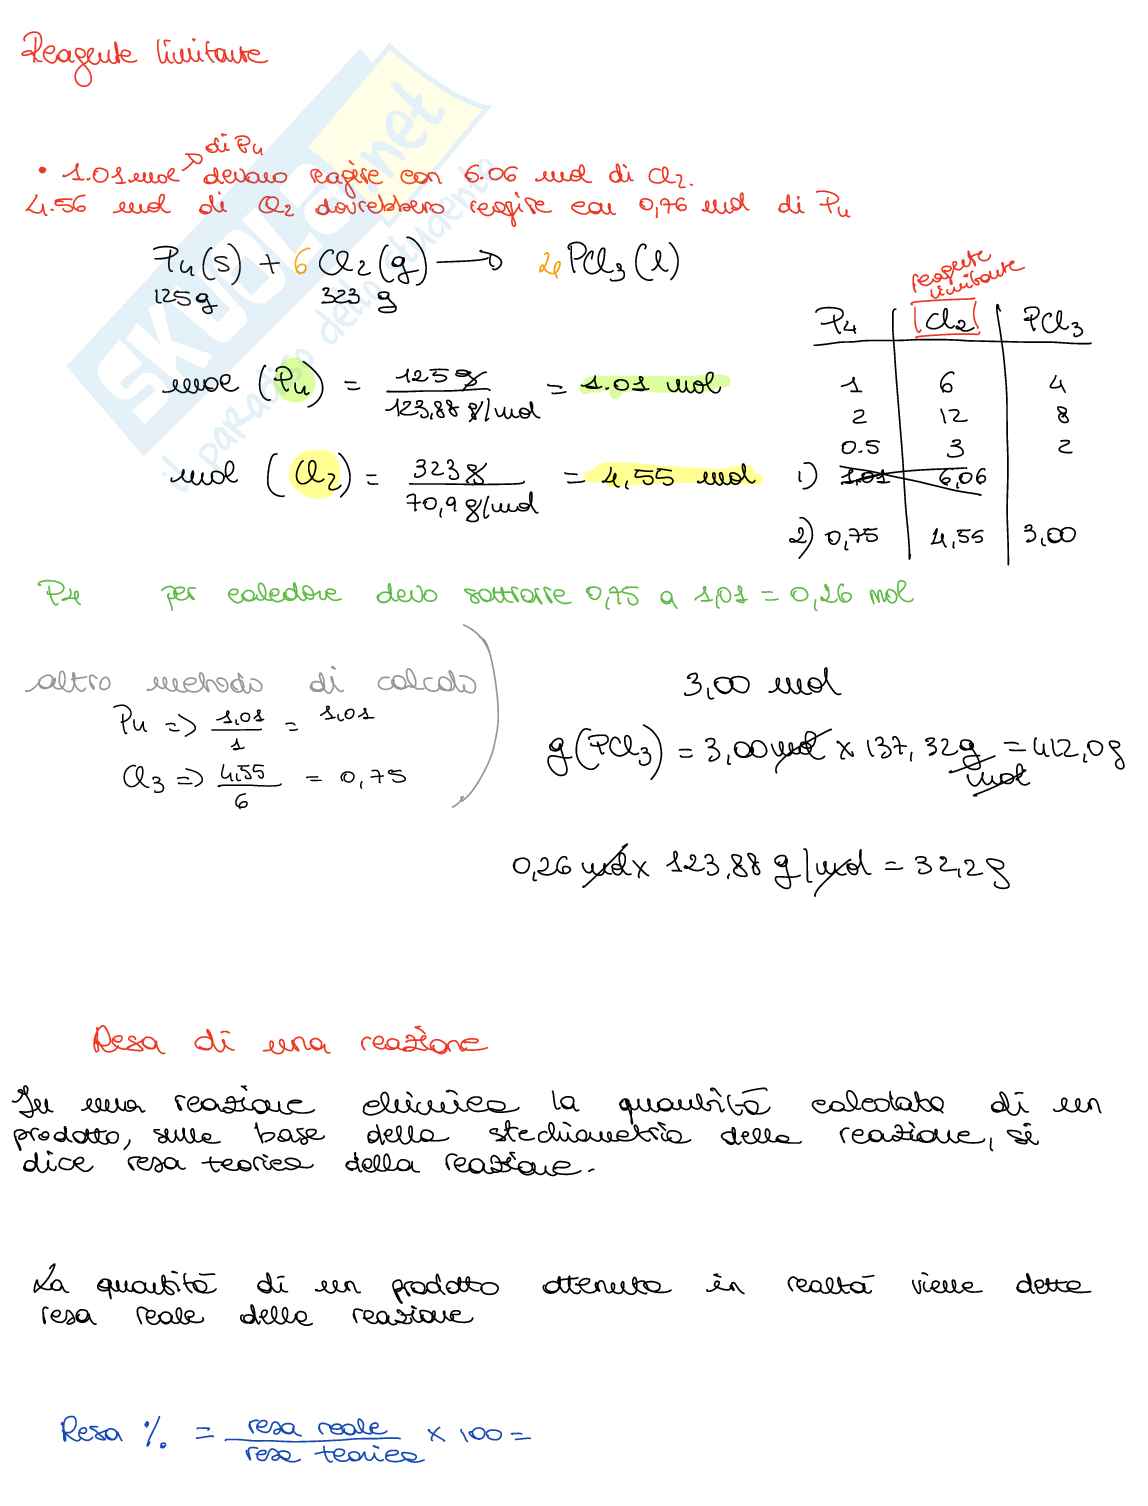 Reagente limitante
di P4
• 1.01 mol devono reagire con 6.06 mol di Cl2.
4.56 mol di Cl2 dovrebbero reagire con 0,76 mol di P4
P4(s) + 6 Cl2(g) → 4 PCl3(l)
125g 323 g
reagente limitante
P4 | Cl2 | PCl3
1 6 4
2 12 8
0.5 3 2
1) 1,01 6,06
2) 0,75 4,55 3,00
mol (P4) = 125g / 123,88 g/mol = 1.01 mol
mol (Cl2) = 323g / 70,9 g/mol = 4,55 mol
P4 per calcolare devo sottrarre 0,75 a 1,01 = 0,26 mol
altro metodo di calcolo
P4 => 1,01 / 1 = 1,01
Cl3 => 4,55 / 6 = 0,75
3,00 mol
g(PCl3) = 3,00 mol x 137,32 g/mol = 412,0g
0,26 mol x 123,88 g/mol = 32,2g
Resa di una reazione
In una reazione chimica la quantità calcolata di un
prodotto, sulla base della stechiometria della reazione, si
dice resa teorica della reazione.
La quantità di un prodotto ottenuta in realtà viene detta
resa reale della reazione
Resa % = resa reale / resa teorica x 100 =
SKUOLA.net
il paradiso dello studente